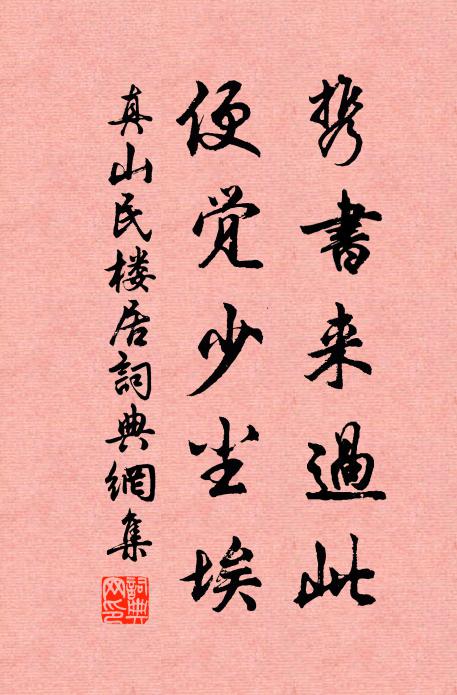 携书来過此
便觉少尘埃
真山民楼居詞典網集
詞典网印